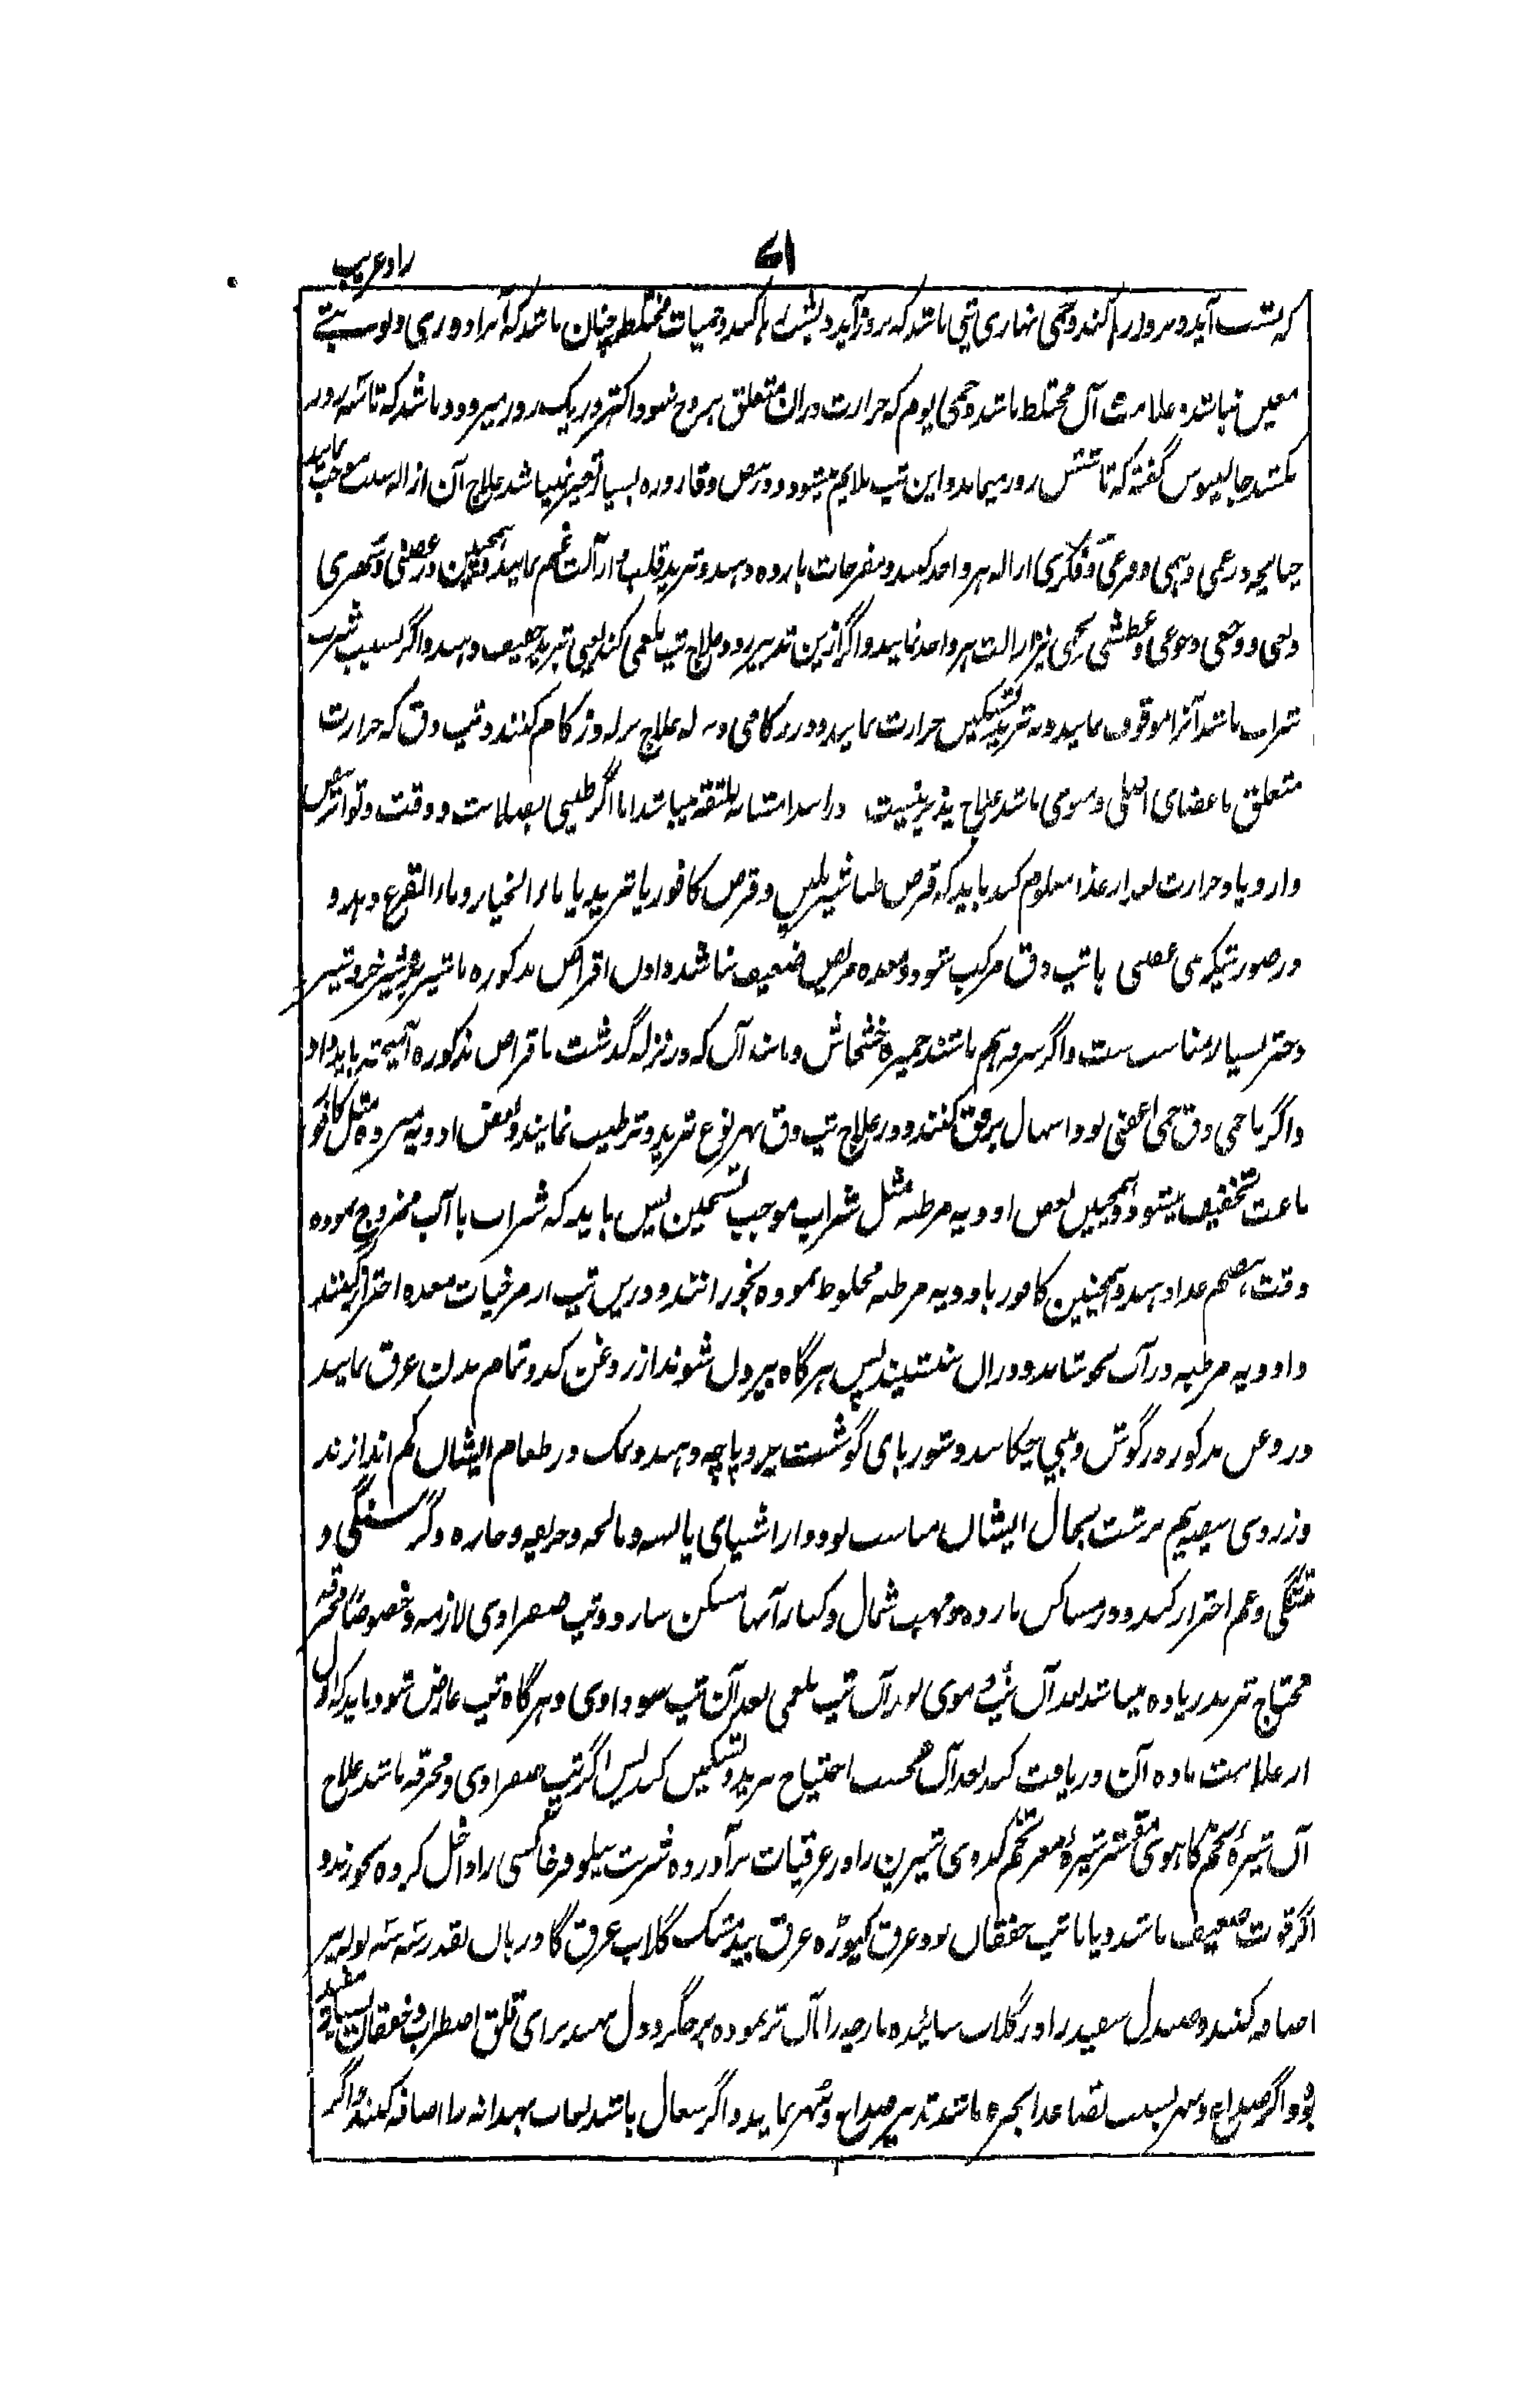 زاد غریب
۷۱
که بشب آید و بروز رها کند و حمی نهاری تپی باشد که بروز آید و بشب رها کند و حمیات مختلطه چنان باشد که آنرا دوری و نوبتے
معین نباشد و علامت آن مختلط باشد و حمی یوم که حرارت دران متعلق بروح شود و اکثر در یک روز میرود و باشد که تا سه روز
بکشد جالینوس گفته که تا شش روز میماند و این تپ ملایم میشود و در نبض و قاروره بسیار تغیر نمیباشد علاج آن ازاله سبب موجب نمایند
چنانچه در غمی و همی و فزعی و فکری ازاله هر واحد کنند و مفرحات بارده دهند و تبرید قلب از آلات غم نمایند و همچنین در غضبی و سهری
و تعبی و وجعی و جوعی و عطشی نیز ازالت هر واحد نمایند و اگر ازین تدبیر نرود علاج تپ بلغمی کنند یعنی تبرید خفیف دهند و اگر بسبب شرب
شراب باشد آنرا موقوف نمایند و به تبرید تسکین حرارت نمایند و در زکامی و نزله علاج نزله و زکام کنند و تپ دق که حرارت
متعلق باعضای اصلی و سومی باشد علاج پذیر نیست در ابتدا مشابه بلثقه میباشد اما اگر طبیبی بصلابت و دقت و تواتر نبض
دارد یا و حرارت بعد از غذا معلوم کند باید که قرص طباشیر ملین و قرص کافور یا تبرید یا ماء الخیار و ماء القرع دهد و
در صورتیکه حمی عفنی با تپ دق مرکب شود و معده مریض ضعیف نباشد دادن اقراص مذکوره با شیر بز و شیر خر و شیر
دختر بسیار مناسب ست و اگر سرفه هم باشد خمیره خشخاش و مانند آن که در نزله گذشت با اقراص مذکوره آمیخته باید داد
و اگر با حمی دق حمی عفنی بود اسهال برفق کنند و در علاج تپ دق بهر نوع تبرید و ترطیب نمایند و بعض ادویه مبرده مثل کافور
باعث تخفیف میشود و همچنین بعض ادویه مرطبه مثل شراب موجب تسخین پس باید که شراب با آب ممزوج نموده
وقت هضم غذا دهند و همچنین کافور با ادویه مرطبه مخلوط نموده بخورانند و درین تپ از مرخیات معده احتراز کنند
و ادویه مرطبه در آب بجوشانند و دران بنشینند پس هرگاه بیرون شوند از روغن کدو تمام بدن عرق نمایند
و روغن مذکور در گوش و بینی چکانند و شوربای گوشت بز و پاچه دهند و نمک در طعام ایشان کم اندازند
و زردی بیضه نیم برشت بحال ایشان مناسب بود و از اشیای یابسه و مالحه و حریفه و حاره و گرسنگی و
تشنگی و غم احتراز کنند و در مساکن بارده و مهب شمال و کنار آبها مسکن سازد و تپ صفراوی لازمه خصوصا محرقه
محتاج تبرید زیاده میباشد بعد آن تپ دموی بعد آن تپ بلغمی بعد آن تپ سوداوی و هرگاه تپ عارض شود باید که اول
از علامت ماده آن دریافت کنند بعد آن بحسب احتیاج تبرید و تسکین کنند پس اگر تپ صفراوی و محرقه باشد علاج
آن شیرهٔ تخم کاهوی مقشر شیرهٔ مغز تخم کدوی شیرین را در عرقیات برآورده شربت نیلوفر خاکسی را داخل کرده بخورند و
اگر قوت ضعیف باشد و یا با تپ خفقان بود عرق کیوڑه عرق بیدمشک گلاب عرق گاوزبان بقدر سه سه توله نیز
اضافه کنند و صندل سفید را در گلاب سائیده پارچه را بآن تر نموده بر جگر و دل نهند برای قلق و اضطراب و خفقان بسیار مفید
بود و اگر صداع و سهر بسبب تصاعد ابخره باشد تدبیر صداع و سهر نمایند و اگر سعال باشد لعاب بهدانه را اضافه کنند و اگر